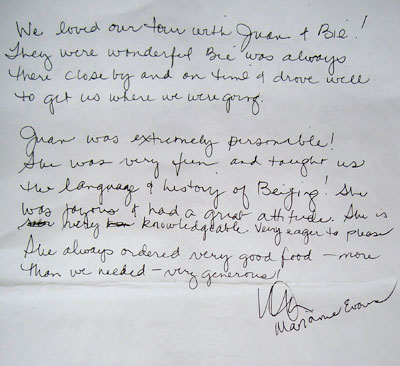 We loved our tour with Juan & Bié!
They were wonderful Bié was always
there close by and on time & drove well
to get us where we were going.
Juan was extremely personible!
She was very fun and taught us
the language & history of Beijing! She
was joyous & had a great attitude. She is
very knowledgeable. Very eager to please
She always ordered very good food - more
than we needed - very generous!
Marianne Evans